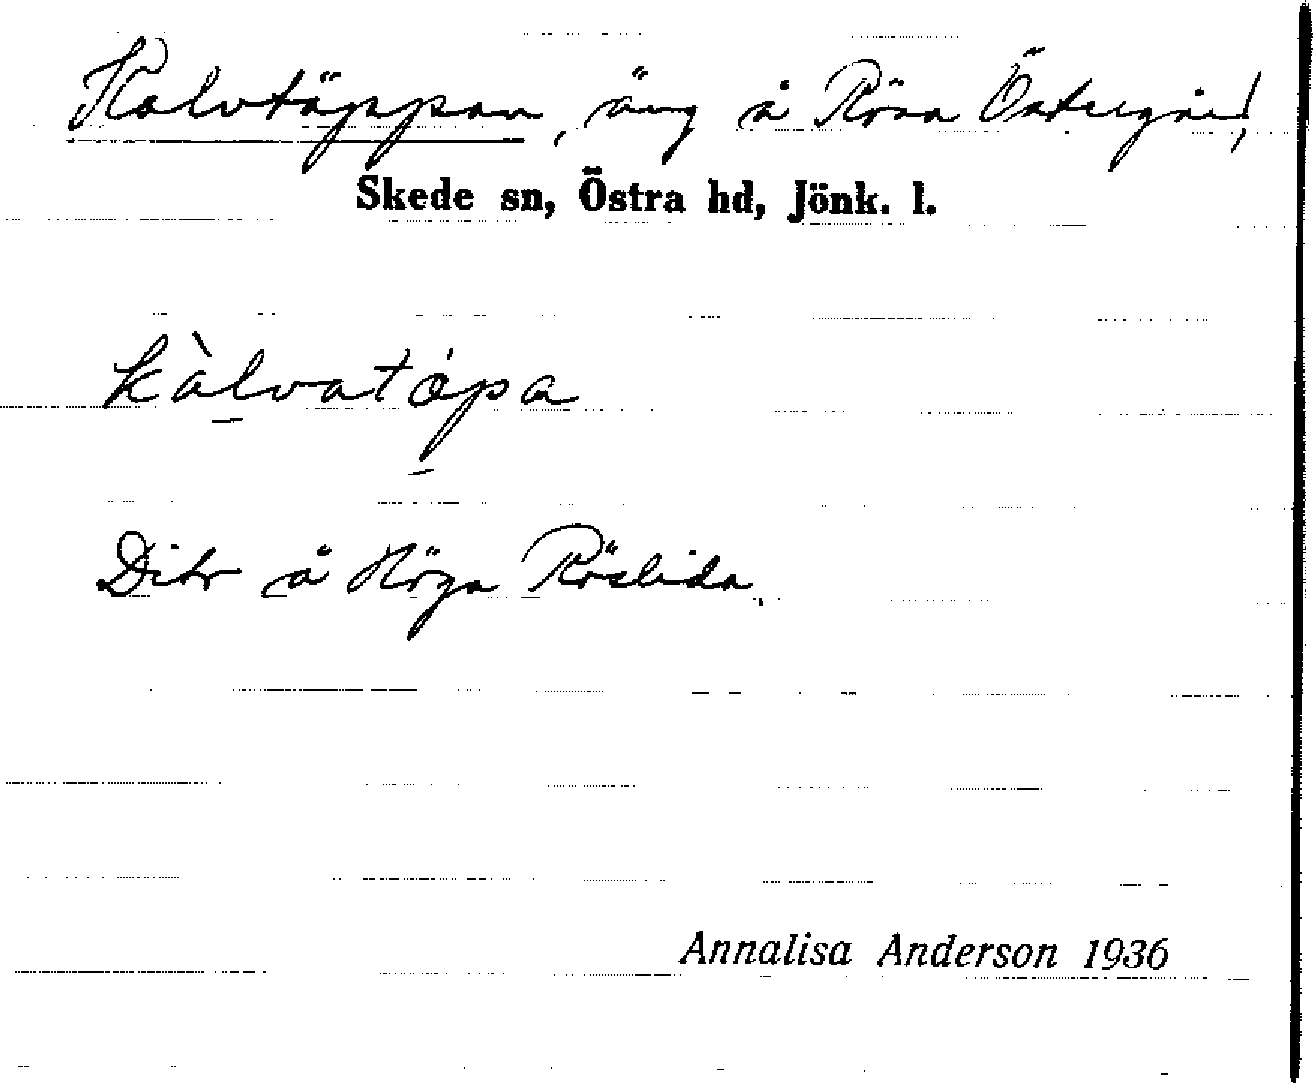 Kalvtäppan, äng å Röna Östergård,
Skede sn, Östra hd, Jönk. l.
kàlvatápa
Dito å Höga Röslida.
Annalisa Anderson 1936